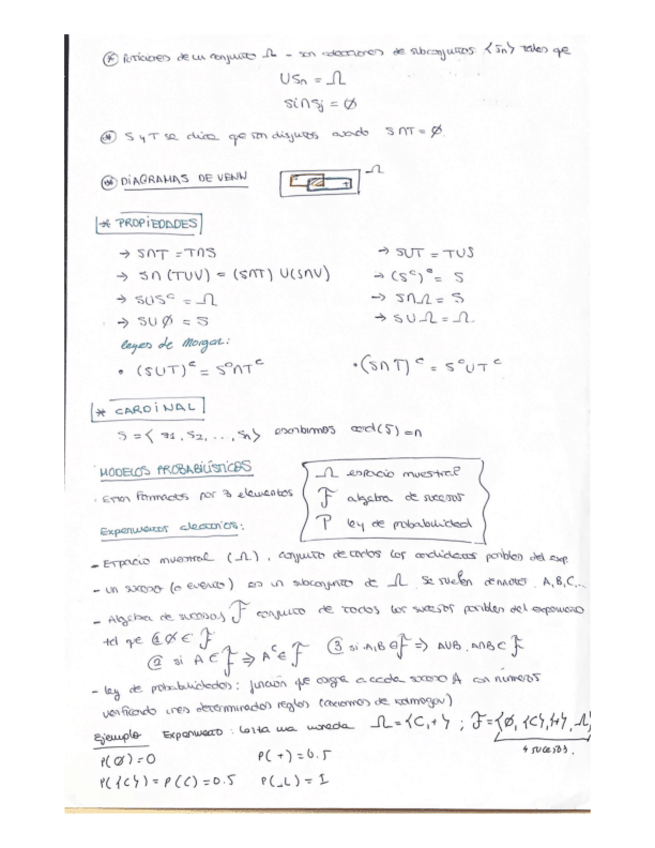 ⊛ Particiones de un conjunto Ω - son colecciones de subconjuntos {Sn} tales que
USn = Ω
Si∩Sj = Ø
⊛ S y T se dice que son disjuntos cuando S∩T = Ø.
⊛ DIAGRAMAS DE VENN Ω
* PROPIEDADES
→ S∩T = T∩S → SUT = TUS
→ S∩(TUV) = (S∩T)U(S∩V) → (Sᶜ)ᶜ = S
→ SUSᶜ = Ω → S∩Ω = S
→ SUØ = S → SUΩ = Ω.
leyes de Morgan:
• (SUT)ᶜ = Sᶜ∩Tᶜ • (S∩T)ᶜ = SᶜUTᶜ
* CARDINAL
S = { s1, s2, ..., sn} escribimos card(S) = n
MODELOS PROBABILÍSTICOS Ω espacio muestral
· Están formados por 3 elementos F álgebra de sucesos
Experimentos aleatorios: P ley de probabilidad
- Espacio muestral (Ω), conjunto de todos los resultados posibles del exp.
- un suceso (o evento) es un subconjunto de Ω. Se suelen denotar A,B,C,...
- Algebra de sucesos F conjunto de todos los sucesos posibles del experimento
tal que ① Ø ∈ F
② si A ∈ F ⇒ Aᶜ ∈ F ③ si A,B ∈ F ⇒ AUB, A∩B ∈ F
- ley de probabilidades: función que asigna a cada suceso A un número
verificando unas determinadas reglas (axiomas de kolmogorov)
Ejemplo Experimento: lanza una moneda Ω = {C,+} ; F = {Ø, {C}, {+}, Ω}
4 sucesos.
P(Ø) = 0 P(+) = 0.5
P({C}) = P(C) = 0.5 P(Ω) = 1